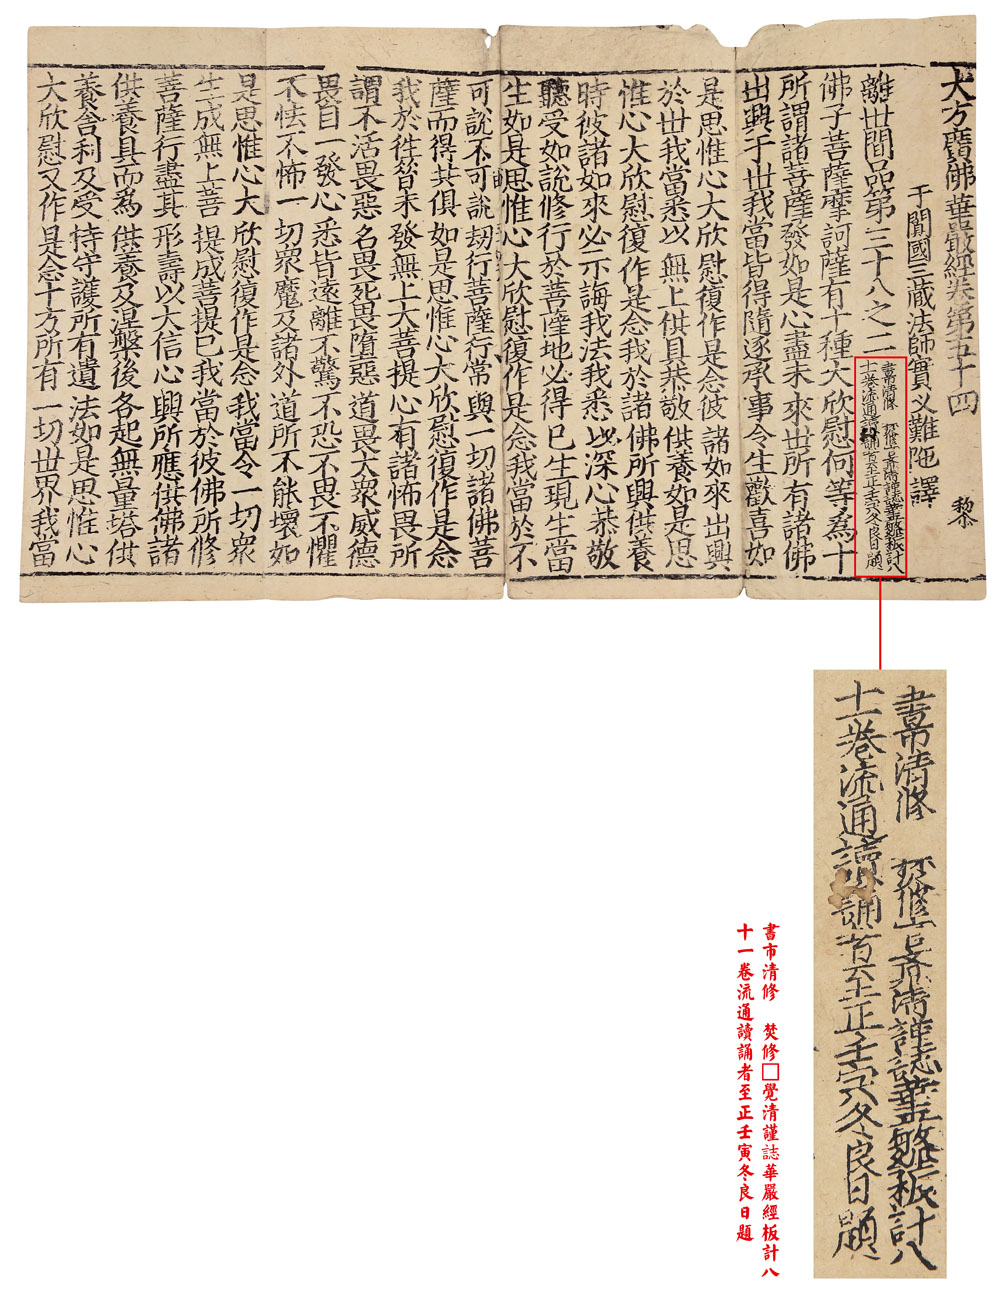 大方廣佛華嚴經卷第五十四
于闐國三藏法師實叉難陁譯　黎
離世間品第三十八之二
書市清修　焚修 覺清謹誌華嚴經板計八
十一卷流通讀誦者至正壬寅冬良日題
佛子菩薩摩訶薩有十種大欣慰何等爲十
所謂諸菩薩發如是心盡未來世所有諸佛
出興于世我當皆得隨逐承事令生歡喜如
是思惟心大欣慰復作是念彼諸如來出興
於世我當悉以無上供具恭敬供養如是思
惟心大欣慰復作是念我於諸佛所興供養
時彼諸如來必示誨我法我悉以深心恭敬
聽受如說修行於菩薩地必得已生現生當
生如是思惟心大欣慰復作是念我當於不
可說不可說劫行菩薩行常與一切諸佛菩
薩而得共俱如是思惟心大欣慰復作是念
我於往昔未發無上大菩提心有諸怖畏所
謂不活畏惡名畏死畏墮惡道畏大衆威德
畏自一發心悉皆遠離不驚不恐不畏不懼
不怯不怖一切衆魔及諸外道所不能壞如
是思惟心大欣慰復作是念我當令一切衆
生成無上菩提成菩提已我當於彼佛所修
菩薩行盡其形壽以大信心興所應供佛諸
供養具而爲供養及涅槃後各起無量塔供
養舍利及受持守護所有遺法如是思惟心
大欣慰又作是念十方所有一切世界我當
書市清修　焚修 覺清謹誌華嚴經板計八
十一卷流通讀誦者至正壬寅冬良日題
書市清修　焚修□覺清謹誌華嚴經板計八
十一卷流通讀誦者至正壬寅冬良日題